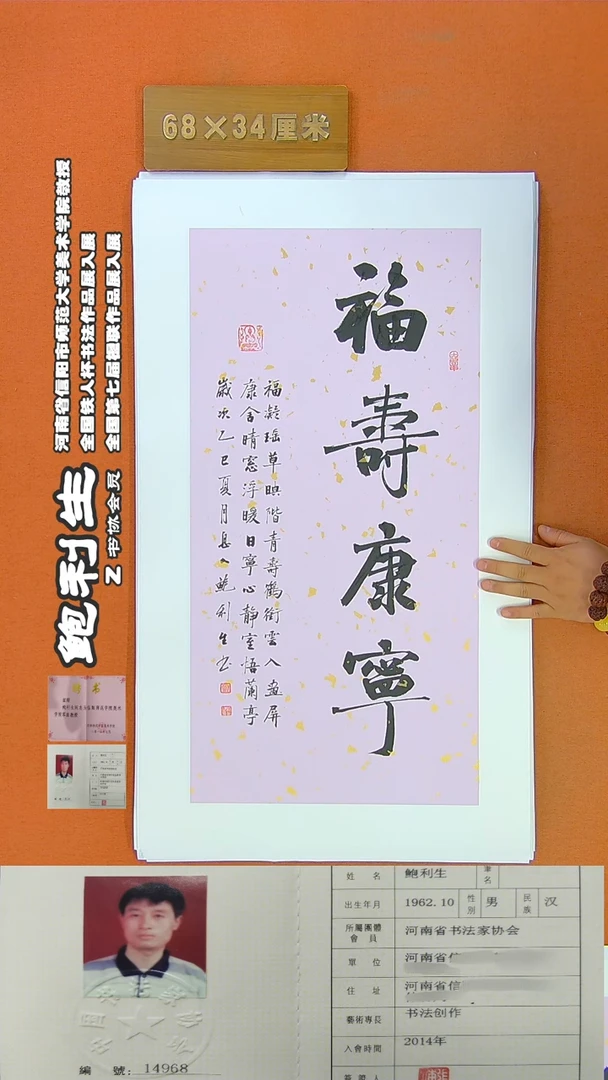 68×34厘米
福壽康寧
福凝瑶草映階青壽鶴銜雲入畫屏
康舍晴窓浮暖日寧心靜室悟蘭亭
歲次乙巳夏月息人鮑利生书
河南省信阳市师范大学美术学院教授
全国铁人杯书法作品展入展
全国第七届楹联作品展入展
鲍利生
Z 书协会员
姓 名 鲍利生 筆名
出生年月 1962.10 性別 男 民族 汉
所屬團體會員 河南省书法家协会
單 位 河南省信
住 址 河南省信
藝術專長 书法创作
入會時間 2014年
編 號: 14968